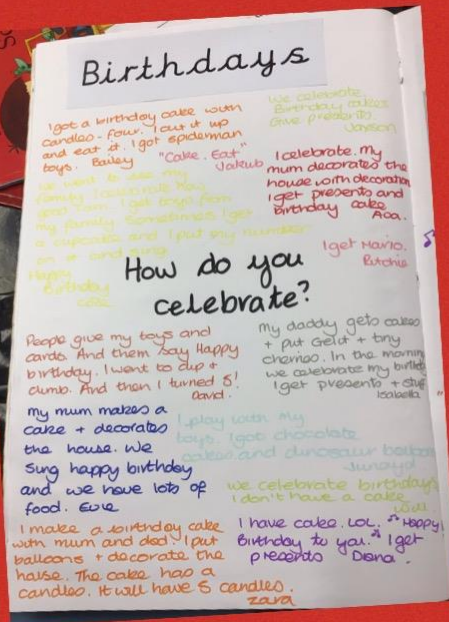 Birthdays
I got a birthday cake with
candles - four. I cut it up
and eat it. I got spiderman
toys. Bailey
"Cake. Eat"
Jakub
We celebrate
Birthday cakes
Give presents.
Jayson
I celebrate. My
mum decorates the
house with decoration
I get presents and
birthday cake
I get Mario.
Ritchie
family I celebrate
I get toys from
my family sometimes I get
a cupcake and I put my number
on it and sing
Happy
Birthday
How do you
celebrate?
People give my toys and
cards. And them say Happy
birthday. I went to clip +
climb. And then I turned 5!
David.
My daddy gets cakes
+ put Gelat + tiny
cherries. In the morning
we celebrate my birthd
I get presents + stuff
Isabella
my mum makes a
cake + decorates
the house. We
sung happy birthday
and we have lots of
food. Evie
I play with my
toys. I got chocolate
cakes and dinosaur
Junayd
we celebrate birthdays
I don't have a cake
I make a birthday cake
with mum and dad. I put
balloons + decorate the
house. The cake has a
candles. It will have 5 candles.
Zara
I have cake. LOL. "Happy
Birthday to you." I get
presents Diana.